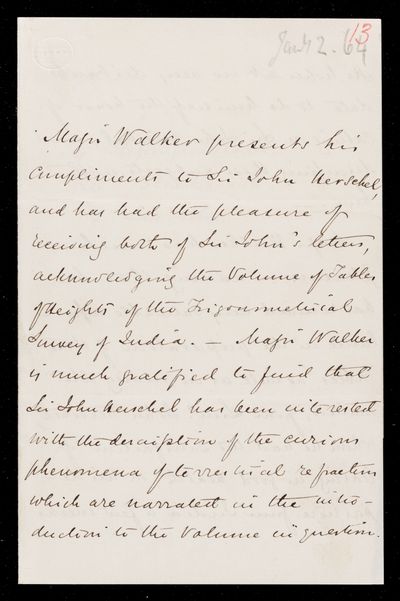 13
Jany 2. 64
Major Walker presents his
compliments to Sir John Herschel,
and has had the pleasure of
receiving both of Sir John's letters,
acknowledging the Volume of Tables
of Heights of the Trigonometrical
Survey of India. — Major Walker
is much gratified to find that
Sir John Herschel has been interested
with the description of the curious
phenomena of terrestrial refraction
which are narrated in the intro-
duction to the Volume in question.